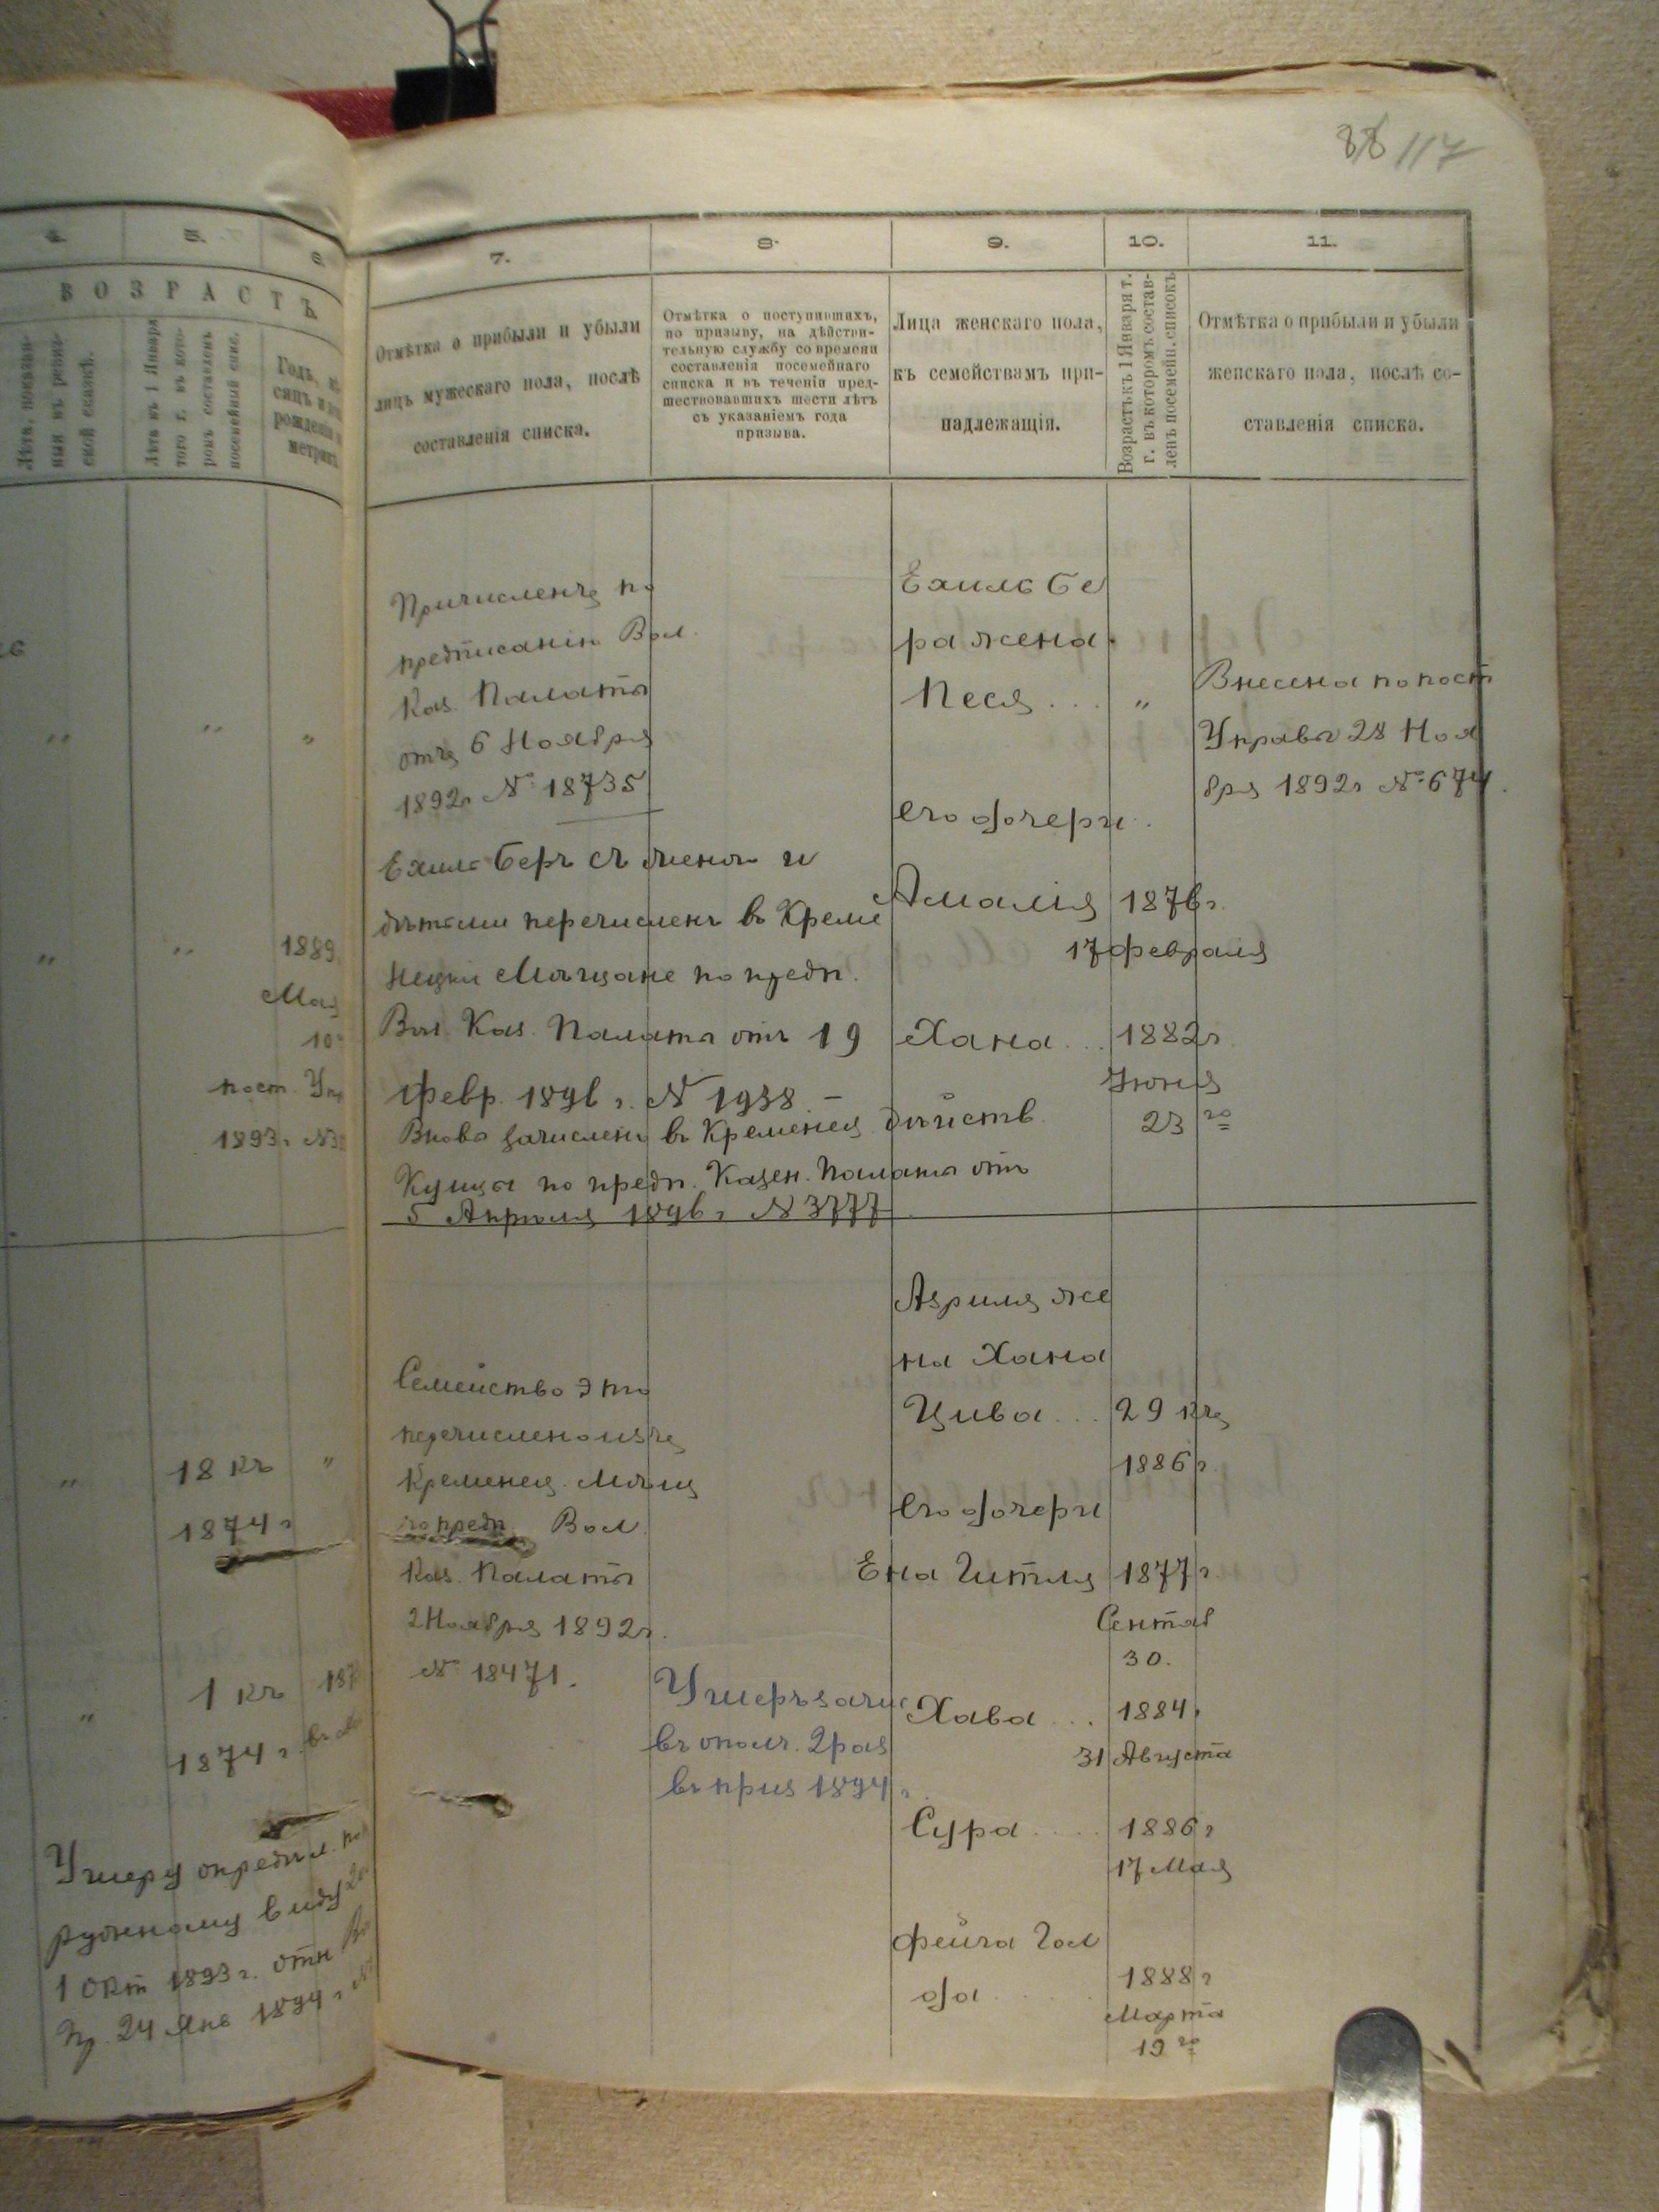 88 117
4. 5. 6.
ВОЗРАСТЪ.
Лѣта, показан-
ныя въ ревиз-
ской сказкѣ.
Лѣта къ 1 Января
того г. въ кото-
ромъ составленъ
посемейный спис.
Годъ, мѣ-
сяцъ и
рожденія
метрик
"
"
"
"
"
1889
Мая
10
пост. Упр
1893г. №
"
18 къ
"
1874 г
"
1 къ
187
1874 г.
Умеру опредѣл. по
ружному виду
1 Окт 1893 г. отн
Пр. 24 Янв 1894 г
7.
Отмѣтка о прибыли и убыли
лицъ мужескаго пола, послѣ
составленія списка.
Причисленъ по
предписанію Вол.
Каз. Палаты
отъ 6 Ноября
1892г № 18735
Ехиль Беръ съ женою и
дѣтьми перечисленъ въ Креме
нецкіе Мѣщане по предп.
Вол. Каз. Палаты отъ 19
Февр. 1896 г. № 1938. –
Вновь зачислены въ Кременец. дѣйств.
Купцы по предп. Казен. Палаты отъ
5 Апрѣля 1896 г № 3777
Семейство это
перечислено изъ
Кременец. Мѣщ
по предп Вол.
Каз. Палаты
2 Ноября 1892г.
№ 18471.
8.
Отмѣтка о поступившихъ,
по призыву, на дѣйстви-
тельную службу со времени
составленія посемейнаго
списка и въ теченіи пред-
шествовавшихъ шести лѣтъ
съ указаніемъ года
призыва.
Умеръ зачис
въ ополч. 2 раз
въ приз 1894 г.
9.
Лица женскаго пола,
къ семействамъ при-
надлежащія.
Ехиль Бе
ра жена
Песя . . .
его дочери
Амалія
Хана . . .
Азриля же
на Хана
Цива . . .
его дочери
Ена Гитля
Хава . . .
Сура . . . .
Фейга Гол
да . . . .
10.
Возрастъ къ 1 Января т.
г. въ которомъ состав-
ленъ посемейн. списокъ
"
1876г.
17 февраля
1882г
Іюня
23 го
29 къ
1886 г.
1877 г
Сентяб
30.
1884 г
31 Августа
1886 г
17 Мая
1888 г
Марта
19 го
11.
Отмѣтка о прибыли и убыли
женскаго пола, послѣ со-
ставленія списка.
Внесена по пост
Управы 28 Ноя
бря 1892г № 674.